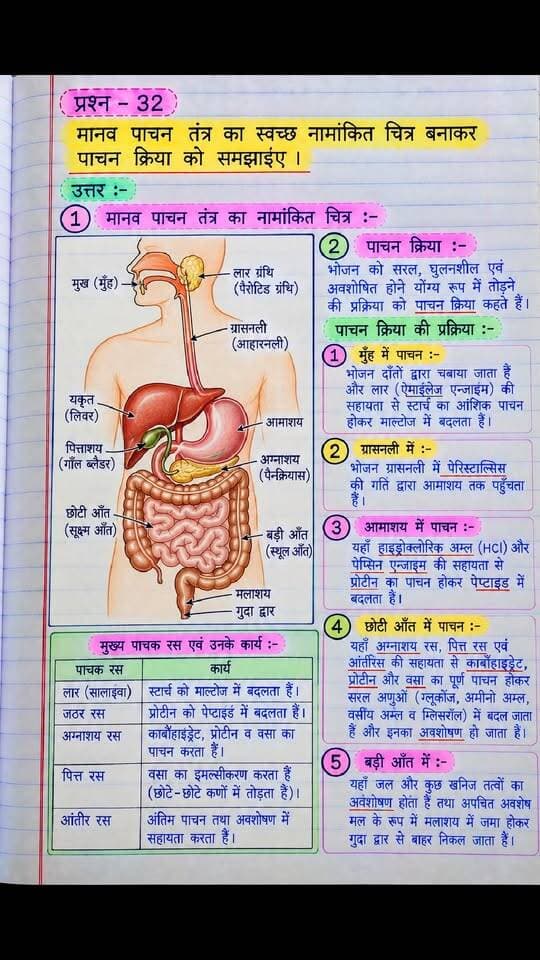 प्रश्न - 32
मानव पाचन तंत्र का स्वच्छ नामांकित चित्र बनाकर
पाचन क्रिया को समझाइंए ।
उत्तर :-
1 मानव पाचन तंत्र का नामांकित चित्र :-
मुख (मुँह)
लार ग्रंथि
(पैरोटिड ग्रंथि)
ग्रासनली
(आहारनली)
यकृत
(लिवर)
आमाशय
पित्ताशय
(गॉल ब्लैडर)
अग्नाशय
(पैनक्रियास)
छोटी आँत
(सूक्ष्म आँत)
बड़ी आँत
(स्थूल आँत)
मलाशय
गुदा द्वार
मुख्य पाचक रस एवं उनके कार्य :-
पाचक रस कार्य
लार (सालाइंवा) स्टार्च को माल्टोज में बदलता हैं।
जठर रस प्रोटीन को पेप्टाइंड में बदलता हैं।
अग्नाशय रस कार्बोहाइंड्रेट, प्रोटीन व वसा का
पाचन करता हैं।
पित्त रस वसा का इंमल्सीकरण करता हैं
(छोटे-छोटे कणों में तोड़ता हैं)।
आंतीर रस अंतिम पाचन तथा अवशोषण में
सहायता करता हैं।
2 पाचन क्रिया :-
भोजन को सरल, घुलनशील एवं
अवशोषित होने योंग्य रूप में तोड़ने
की प्रक्रिया को पाचन क्रिया कहते हैं।
पाचन क्रिया की प्रक्रिया :-
1 मुँह में पाचन :-
भोजन दाँतों द्वारा चबाया जाता हैं
और लार (ऐमाईलेज एन्जाइंम) की
सहायता से स्टार्च का आंशिक पाचन
होकर माल्टोज में बदलता हैं।
2 ग्रासनली में :-
भोजन ग्रासनली में पेरिस्टाल्सिस
की गति द्वारा आमाशय तक पहुँचता
हैं।
3 आमाशय में पाचन :-
यहाँ हाइड्रोक्लोरिक अम्ल (HCl) और
पेप्सिन एन्जाइम की सहायता से
प्रोटीन का पाचन होकर पेप्टाइड में
बदलता हैं।
4 छोटी आँत में पाचन :-
यहाँ अग्नाशय रस, पित्त रस एवं
आंतरिस की सहायता से कार्बोहाइड्रेट,
प्रोटीन और वसा का पूर्ण पाचन होकर
सरल अणुओं (ग्लूकोंज, अमीनो अम्ल,
वसीय अम्ल व ग्लिसरॉल) में बदल जाता
हैं और इनका अवशोषण हो जाता हैं।
5 बड़ी आँत में :-
यहाँ जल और कुछ खनिज तत्वों का
अवंशोषण होता हैं तथा अपचित अवशेष
मल के रूप में मलाशय में जमा होकर
गुदा द्वार से बाहर निकल जाता हैं।